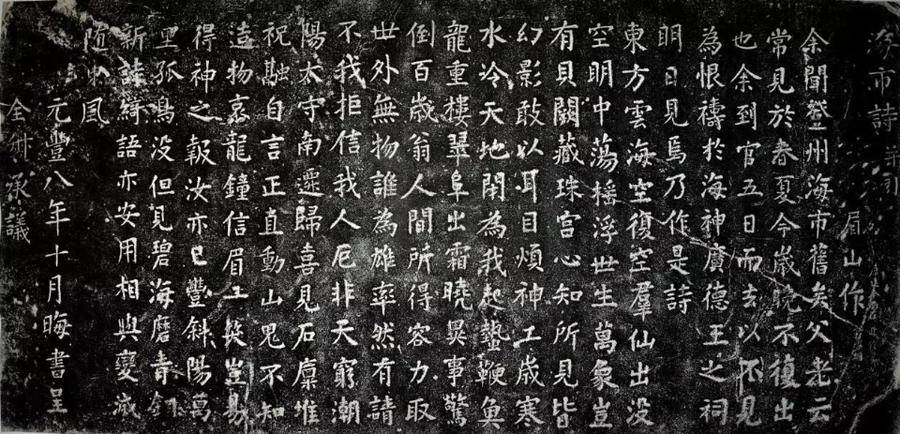 海市詩并引
眉山作
余聞登州海市舊矣父老云
常見於春夏今歲晚不復出
也余到官五日而去以不見
為恨禱於海神廣德王之祠
明日見焉乃作是詩
東方雲海空復空羣仙出没
空明中蕩摇浮世生萬象豈
有貝闕藏珠宫心知所見皆
幻影敢以耳目煩神工歲寒
水冷天地閉為我起蟄鞭魚
龍重樓翠阜出霜曉異事驚
倒百歲翁人間所得容力取
世外無物誰為雄率然有請
不我拒信我人厄非天窮潮
陽太守南遷歸喜見石廩堆
祝融自言正直動山鬼不知
造物哀龍鐘信眉一笑豈易
得神之報汝亦已豐斜陽萬
里孤鳥没但見碧海磨青銅
新詩綺語亦安用相與變滅
随東風
元豐八年十月晦書呈
全州承議